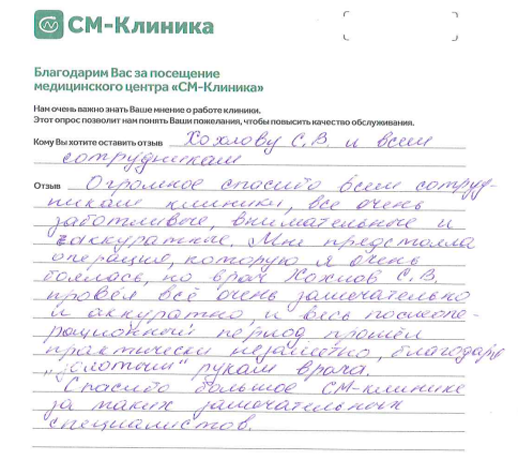 СМ-Клиника
Благодарим Вас за посещение
медицинского центра «СМ-Клиника»
Нам очень важно знать Ваше мнение о работе клиники.
Этот опрос позволит нам понять Ваши пожелания, чтобы повысить качество обслуживания.
Кому Вы хотите оставить отзыв Хохлову С.В. и всем
сотрудникам
Отзыв Огромное спасибо всем сотруд-
никам клиники, все очень
заботливые, внимательные и
аккуратные. Мне предстояла
операция, которую я очень
боялась, но врач Хохлов С.В.
провёл всё очень замечательно
и аккуратно, и весь послеопе-
рационный период прошёл
практически незаметно, благодаря
„золотым" рукам врача.
Спасибо большое СМ-клинике
за таких замечательных
специалистов.